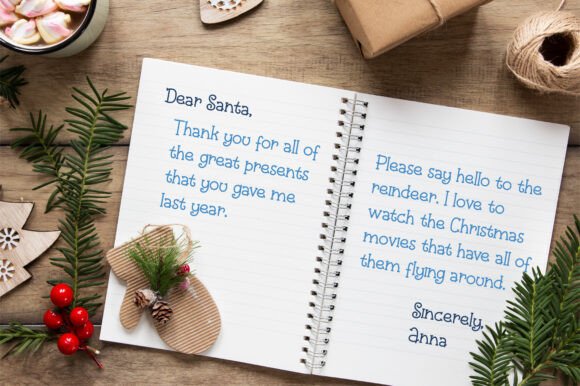 Dear Santa,
Thank you for all of
the great presents
that you gave me
last year.
Please say hello to the
reindeer. I love to
watch the Christmas
movies that have all of
them flying around.
Sincerely,
Anna